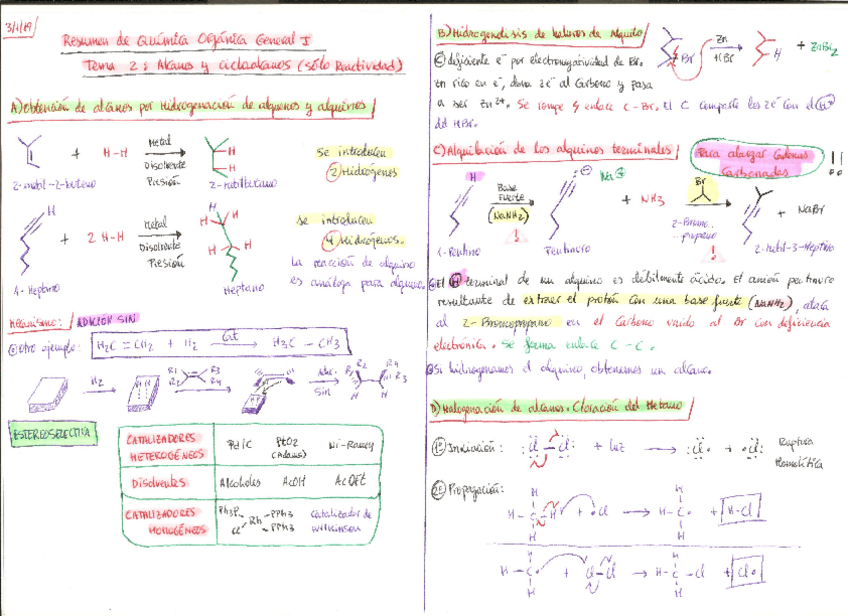 3/1/19
Resumen de Química Orgánica General I
Tema 2: Alcanos y cicloalcanos (sólo Reactividad)
A) Obtención de alcanos por Hidrogenación de alquenos y alquinos
+ H-H
Metal
Disolvente
Presión
2-metil-2-buteno
2-metilbutano
Se introducen
2 Hidrógenos
+ 2 H-H
Metal
Disolvente
Presión
1-Heptino
Heptano
se introducen
4 Hidrógenos.
La reacción de alquino
es análoga para alqueno.
Mecanismo: ADICIÓN SIN
Otro ejemplo: H2C=CH2 + H2 Cat H3C-CH3
H2
R1 R3
R2 R4
Adic.
Sin
ESTEREOSELECTIVA
CATALIZADORES HETEROGÉNEOS Pd/C PtO2 (Adams) Ni-Raney
Disolventes Alcoholes AcOH AcOEt
CATALIZADORES HOMOGÉNEOS Ph3P Cl Rh PPh3 PPh3 Catalizador de Wilkinson
B) Hidrogenólisis de haluros de alquilo
Br Zn HBr H + ZnBr2
C deficiente e- por electronegatividad de Br.
Zn rico en e-, dona 2e- al Carbono y pasa
a ser Zn2+. Se rompe enlace C-Br. El C comparte los 2e- con el H+
del HBr.
C) Alquilación de los alquinos terminales
Para alargar Cadenas Carbonadas !!
H
Base
Fuerte
(NaNH2)
!
Na+
+ NH3
Br
2-Bromo-
propano
!
+ NaBr
1-Pentino
Pentinuro
2-metil-3-Heptino
El H terminal de un alquino es débilmente ácido. El anión pentinuro
resultante de extraer el protón con una base fuerte (NaNH2), ataca
al 2-Bromopropano en el Carbono unido al Br con deficiencia
electrónica. Se forma enlace C-C.
Si hidrogenamos el alquino, obtenemos un alcano.
D) Halogenación de alcanos. Cloración del Metano
1º Iniciación: Cl-Cl + luz Cl• + •Cl Ruptura Homolítica
2º Propagación:
H-C-H + •Cl H-C• + H-Cl
H-C• + Cl-Cl H-C-Cl + Cl•